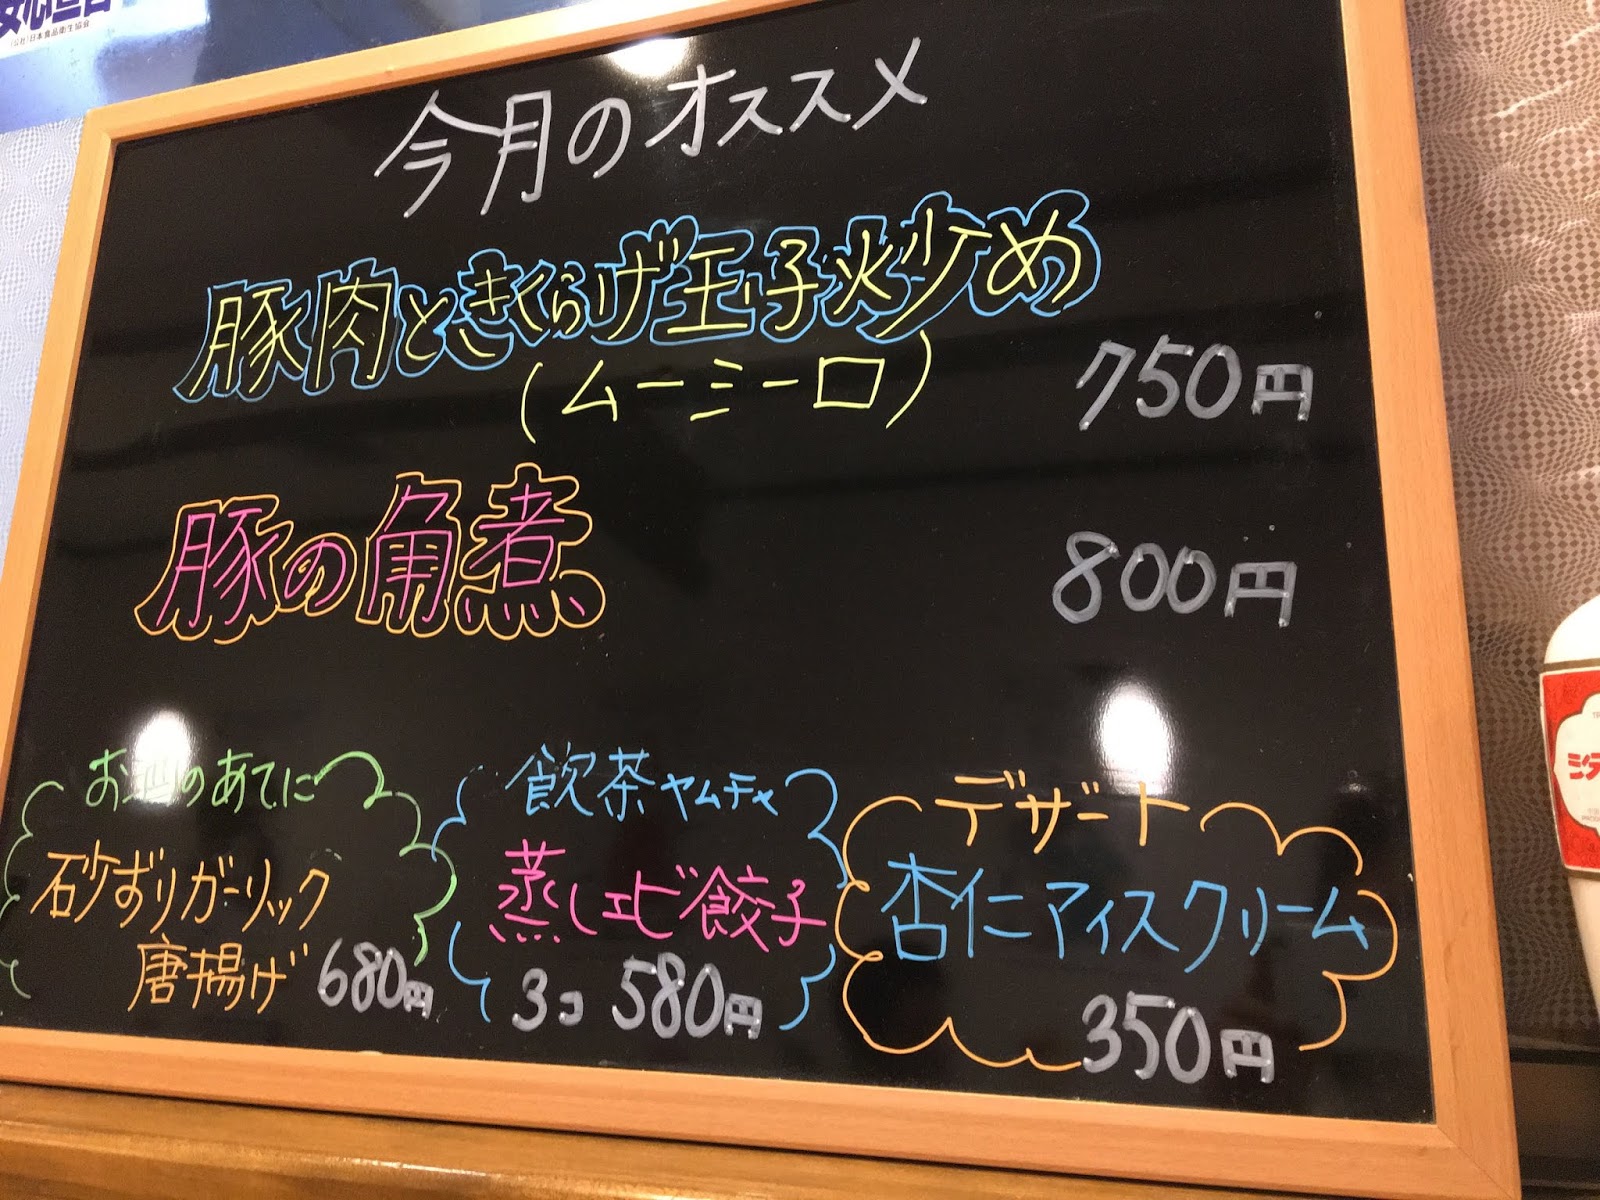 (公社)日本食品衛生協会
今月のオススメ
豚肉ときくらげ玉子炒め
(ムーミーロ)
750円
豚の角煮
800円
お酒のあてに
砂ずりガーリック
唐揚げ 680円
飲茶ヤムチャ
蒸しエビ餃子
3コ 580円
デザート
杏仁アイスクリーム
350円